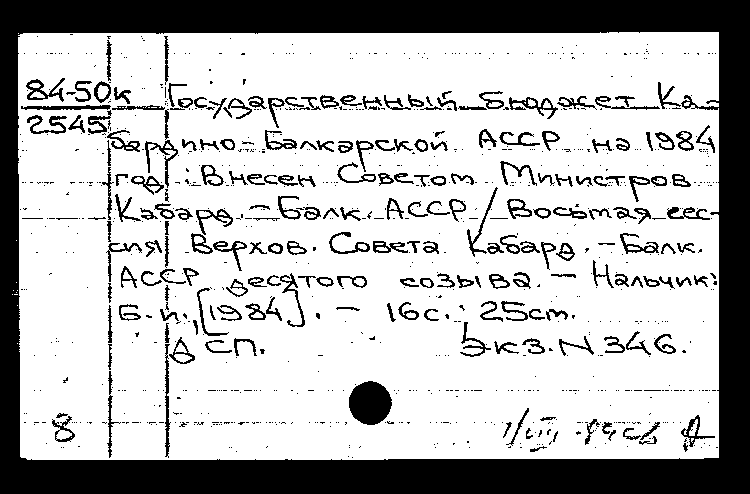 84-50к Государственный бюджет Ка-
2545
бардино-Балкарской АССР на 1984
год : Внесен Советом Министров
Кабард. - Балк. АССР / Восьмая сес-
сия Верхов. Совета Кабард. - Балк.
АССР десятого созыва. - Нальчик:
Б.и., [1984]. - 16с.; 25cm.
ДСП. Экз. N 346.
8